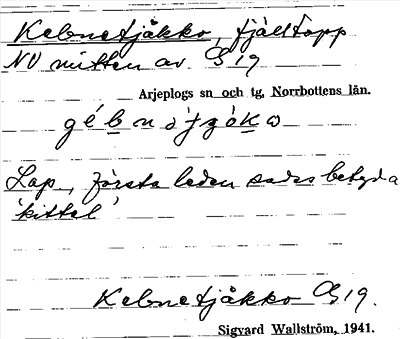 Kebnetjåkko, fjälltopp
NV mitten av G 19
Arjeplogs sn och tg, Norrbottens län.
Lap, första leden sades betyda
'kittel'
Kebnetjåkko G 19.
Sigvard Wallström, 1941.